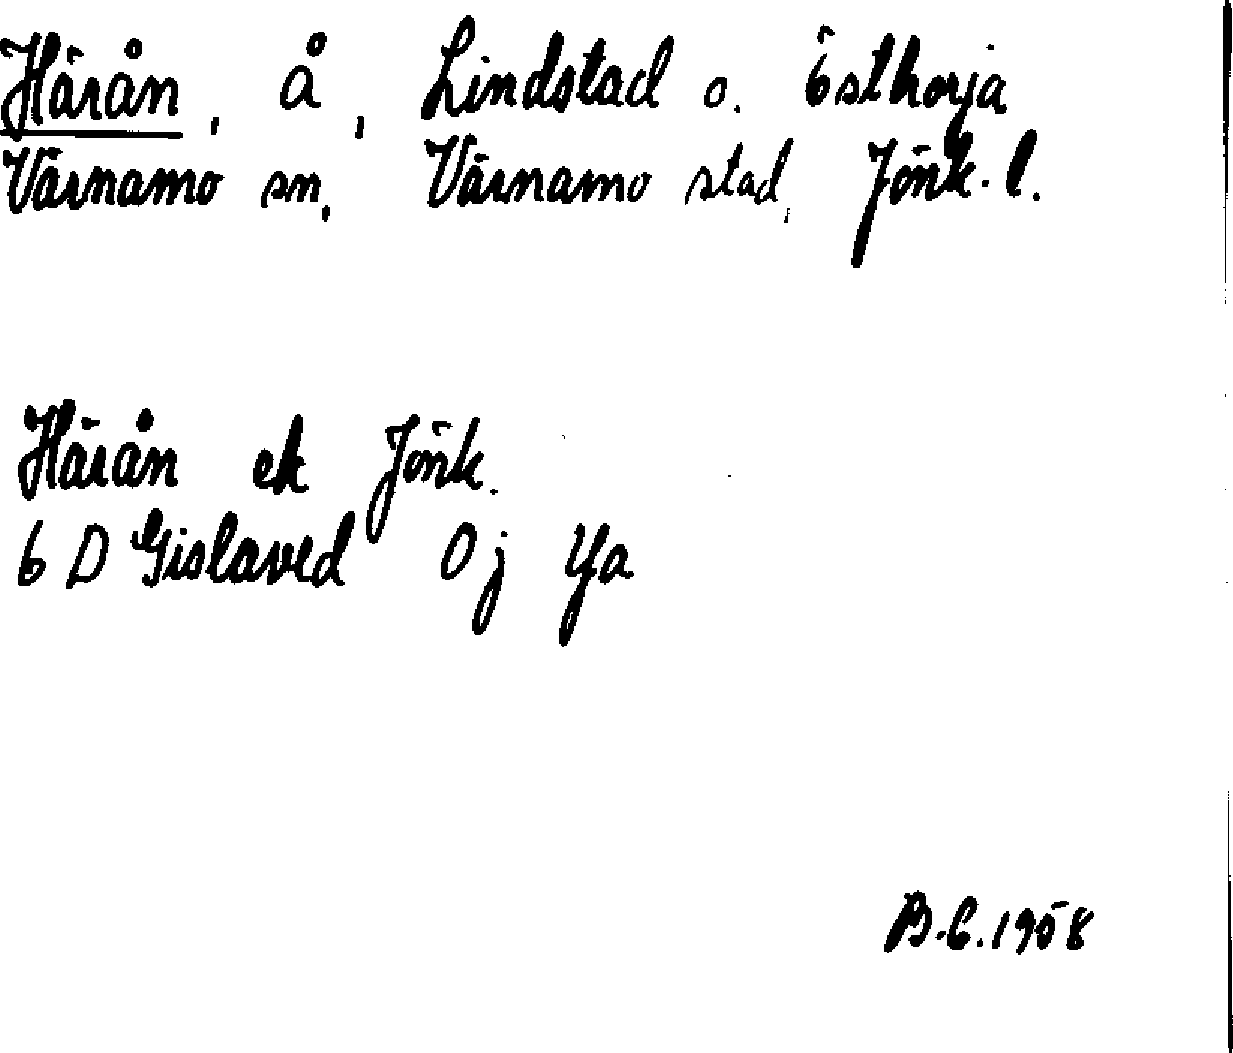 Härån, å, Lindstad o. Östhorja
Värnamo sn, Värnamo stad, Jönk. l.
Härån ek Jönk.
6 D Gislaved 0 j Ya
B.C. 1958